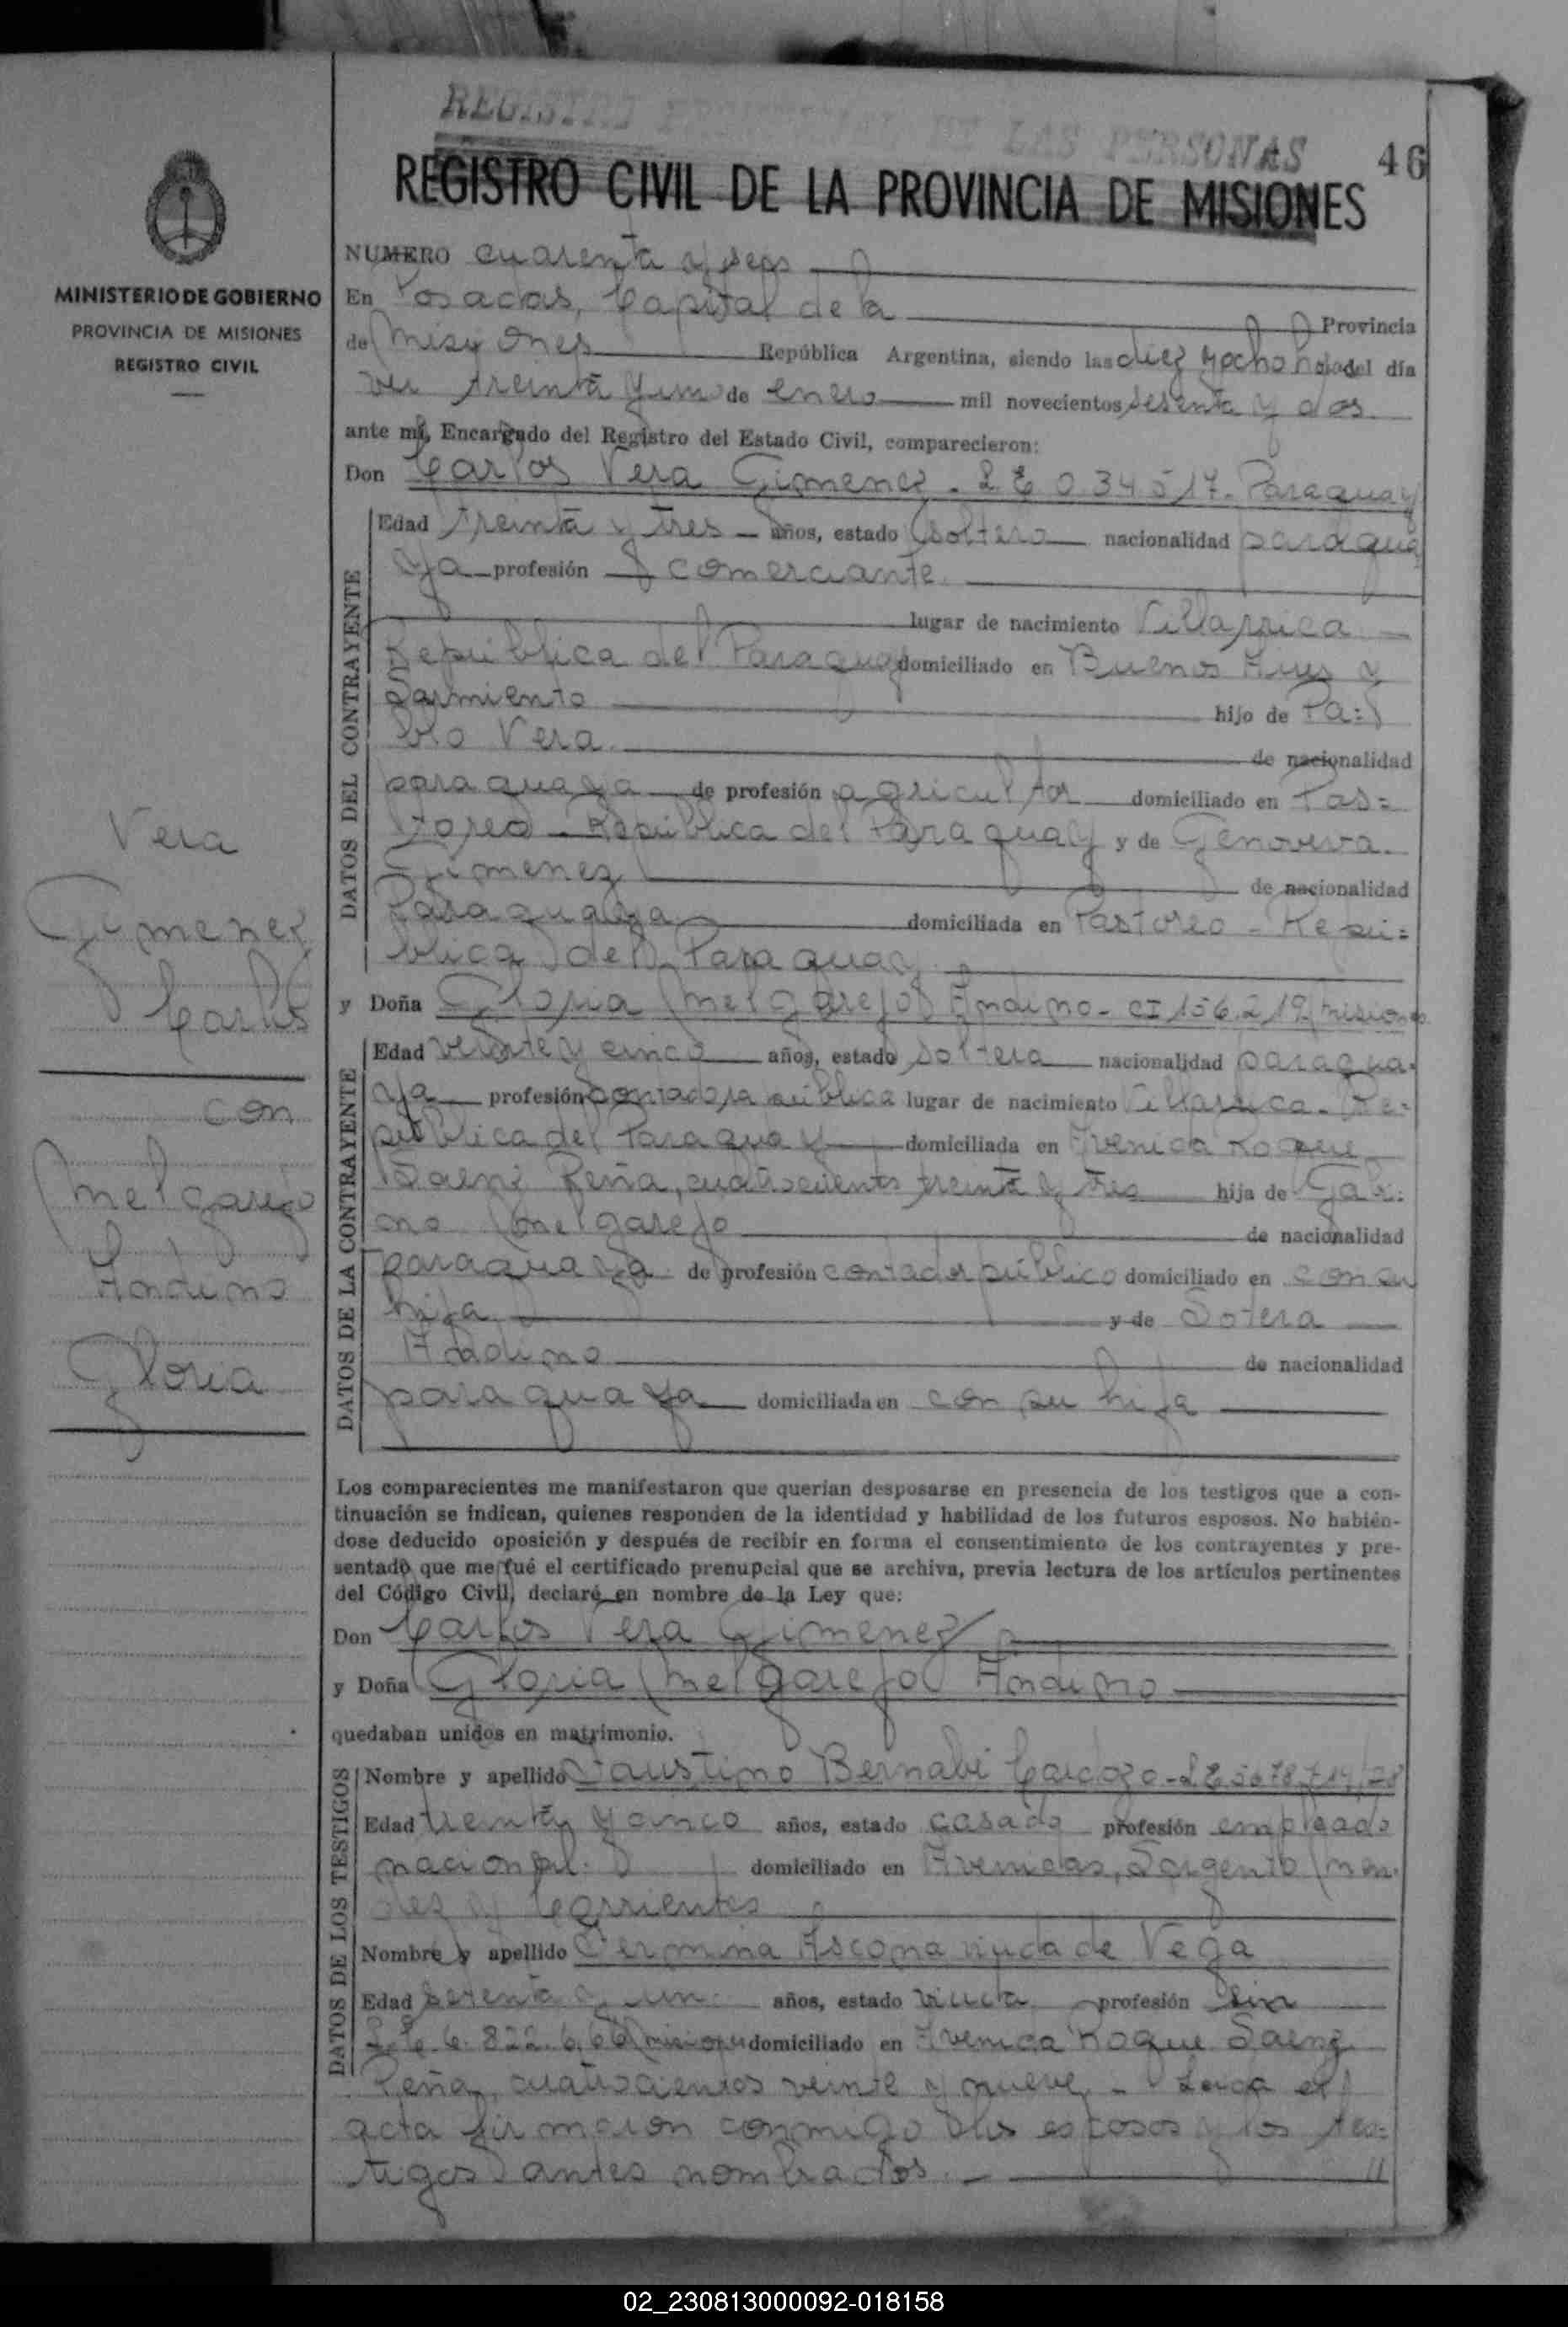 REGISTRO PROVINCIAL DE LAS PERSONAS
46
REGISTRO CIVIL DE LA PROVINCIA DE MISIONES
MINISTERIO DE GOBIERNO
PROVINCIA DE MISIONES
REGISTRO CIVIL
NUMERO cuarenta y seis
En Posadas, Capital de la Provincia
de Misiones República Argentina, siendo las diez y ocho horas del día
treinta y uno de enero mil novecientos sesenta y dos
ante mí, Encargado del Registro del Estado Civil, comparecieron:
Don Carlos Vera Gimenez - L E 034517. Paraguay
DATOS DEL CONTRAYENTE
Edad treinta y tres años, estado soltero nacionalidad paragua
ya profesión comerciante
lugar de nacimiento Villarrica
República del Paraguay domiciliado en Buenos Aires y
Sarmiento hijo de Pa=
blo Vera de nacionalidad
paraguaya de profesión agricultor domiciliado en Pas=
toreo - República del Paraguay y de Genoveva
Gimenez de nacionalidad
Paraguaya domiciliada en Pastoreo - Repú=
blica del Paraguay
y Doña Gloria Melgarejo Andino - CI 156.219 Misiones
DATOS DE LA CONTRAYENTE
Edad veinte y cinco años, estado soltera nacionalidad paragua=
ya profesión contadora pública lugar de nacimiento Villarrica - Re=
pública del Paraguay domiciliada en Avenida Roque
Saenz Peña, cuatrocientos treinta y tres hija de Gab:
no Melgarejo de nacionalidad
paraguaya de profesión contador público domiciliado en con su
hija y de Sotera
Andino de nacionalidad
paraguaya domiciliada en con su hija
Los comparecientes me manifestaron que querían desposarse en presencia de los testigos que a con-
tinuación se indican, quienes responden de la identidad y habilidad de los futuros esposos. No habién-
dose deducido oposición y después de recibir en forma el consentimiento de los contrayentes y pre-
sentado que me fué el certificado prenupcial que se archiva, previa lectura de los artículos pertinentes
del Código Civil, declaré en nombre de la Ley que:
Don Carlos Vera Gimenez
y Doña Gloria Melgarejo Andino
quedaban unidos en matrimonio.
DATOS DE LOS TESTIGOS
Nombre y apellido Faustino Bernabé Cardozo - L E
Edad treinta y cinco años, estado casado profesión empleado
nacional domiciliado en Avenidas, Sargento Men=
dez y Corrientes
Nombre y apellido Fermina Ascona viuda de Vega
Edad setenta y un años, estado viuda profesión sin
L. C. 6.822.666 Misiones domiciliado en Avenida Roque Saenz
Peña, cuatrocientos veinte y nueve. - Leída el
acta firmaron conmigo los esposos y los tes=
tigos antes nombrados. -
Vera
Gimenez
Carlos
con
Melgarejo
Andino
Gloria
02_230813000092-018158